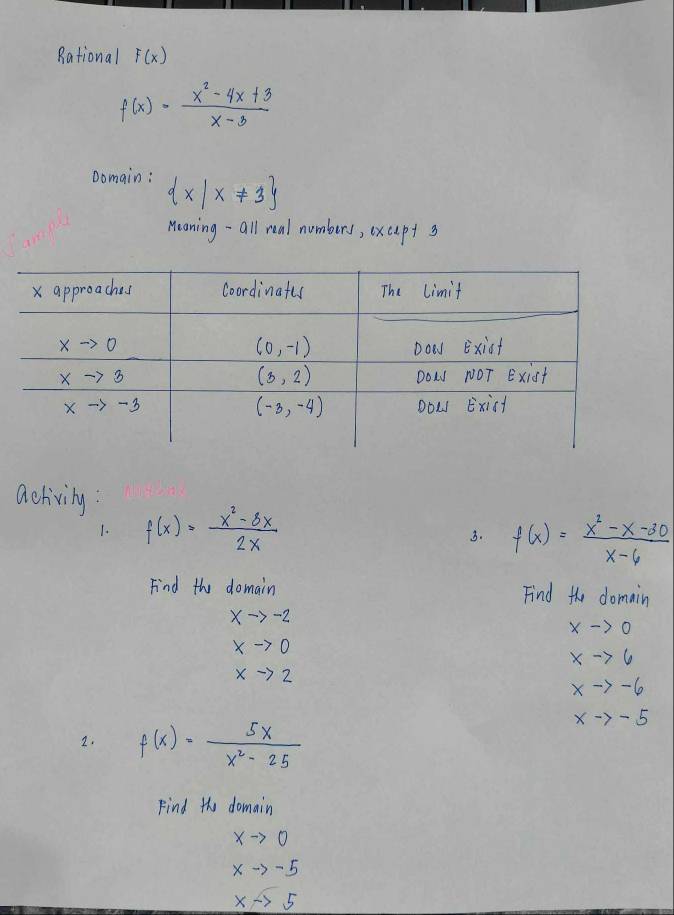 Rational F(x)
f(x) = x² - 4x + 3 / x - 3
Domain: {x | x ≠ 3}
Meaning - all real numbers, except 3
Sample
x approaches Coordinates The Limit
x -> 0 (0, -1) Does Exist
x -> 3 (3, 2) Does NOT Exist
x -> -3 (-3, -4) Does Exist
Activity:
1. f(x) = x² - 8x / 2x
Find the domain
x -> -2
x -> 0
x -> 2
2. f(x) = 5x / x² - 25
Find the domain
x -> 0
x -> -5
x -> 5
3. f(x) = x² - x - 30 / x - 6
Find the domain
x -> 0
x -> 6
x -> -6
x -> -5